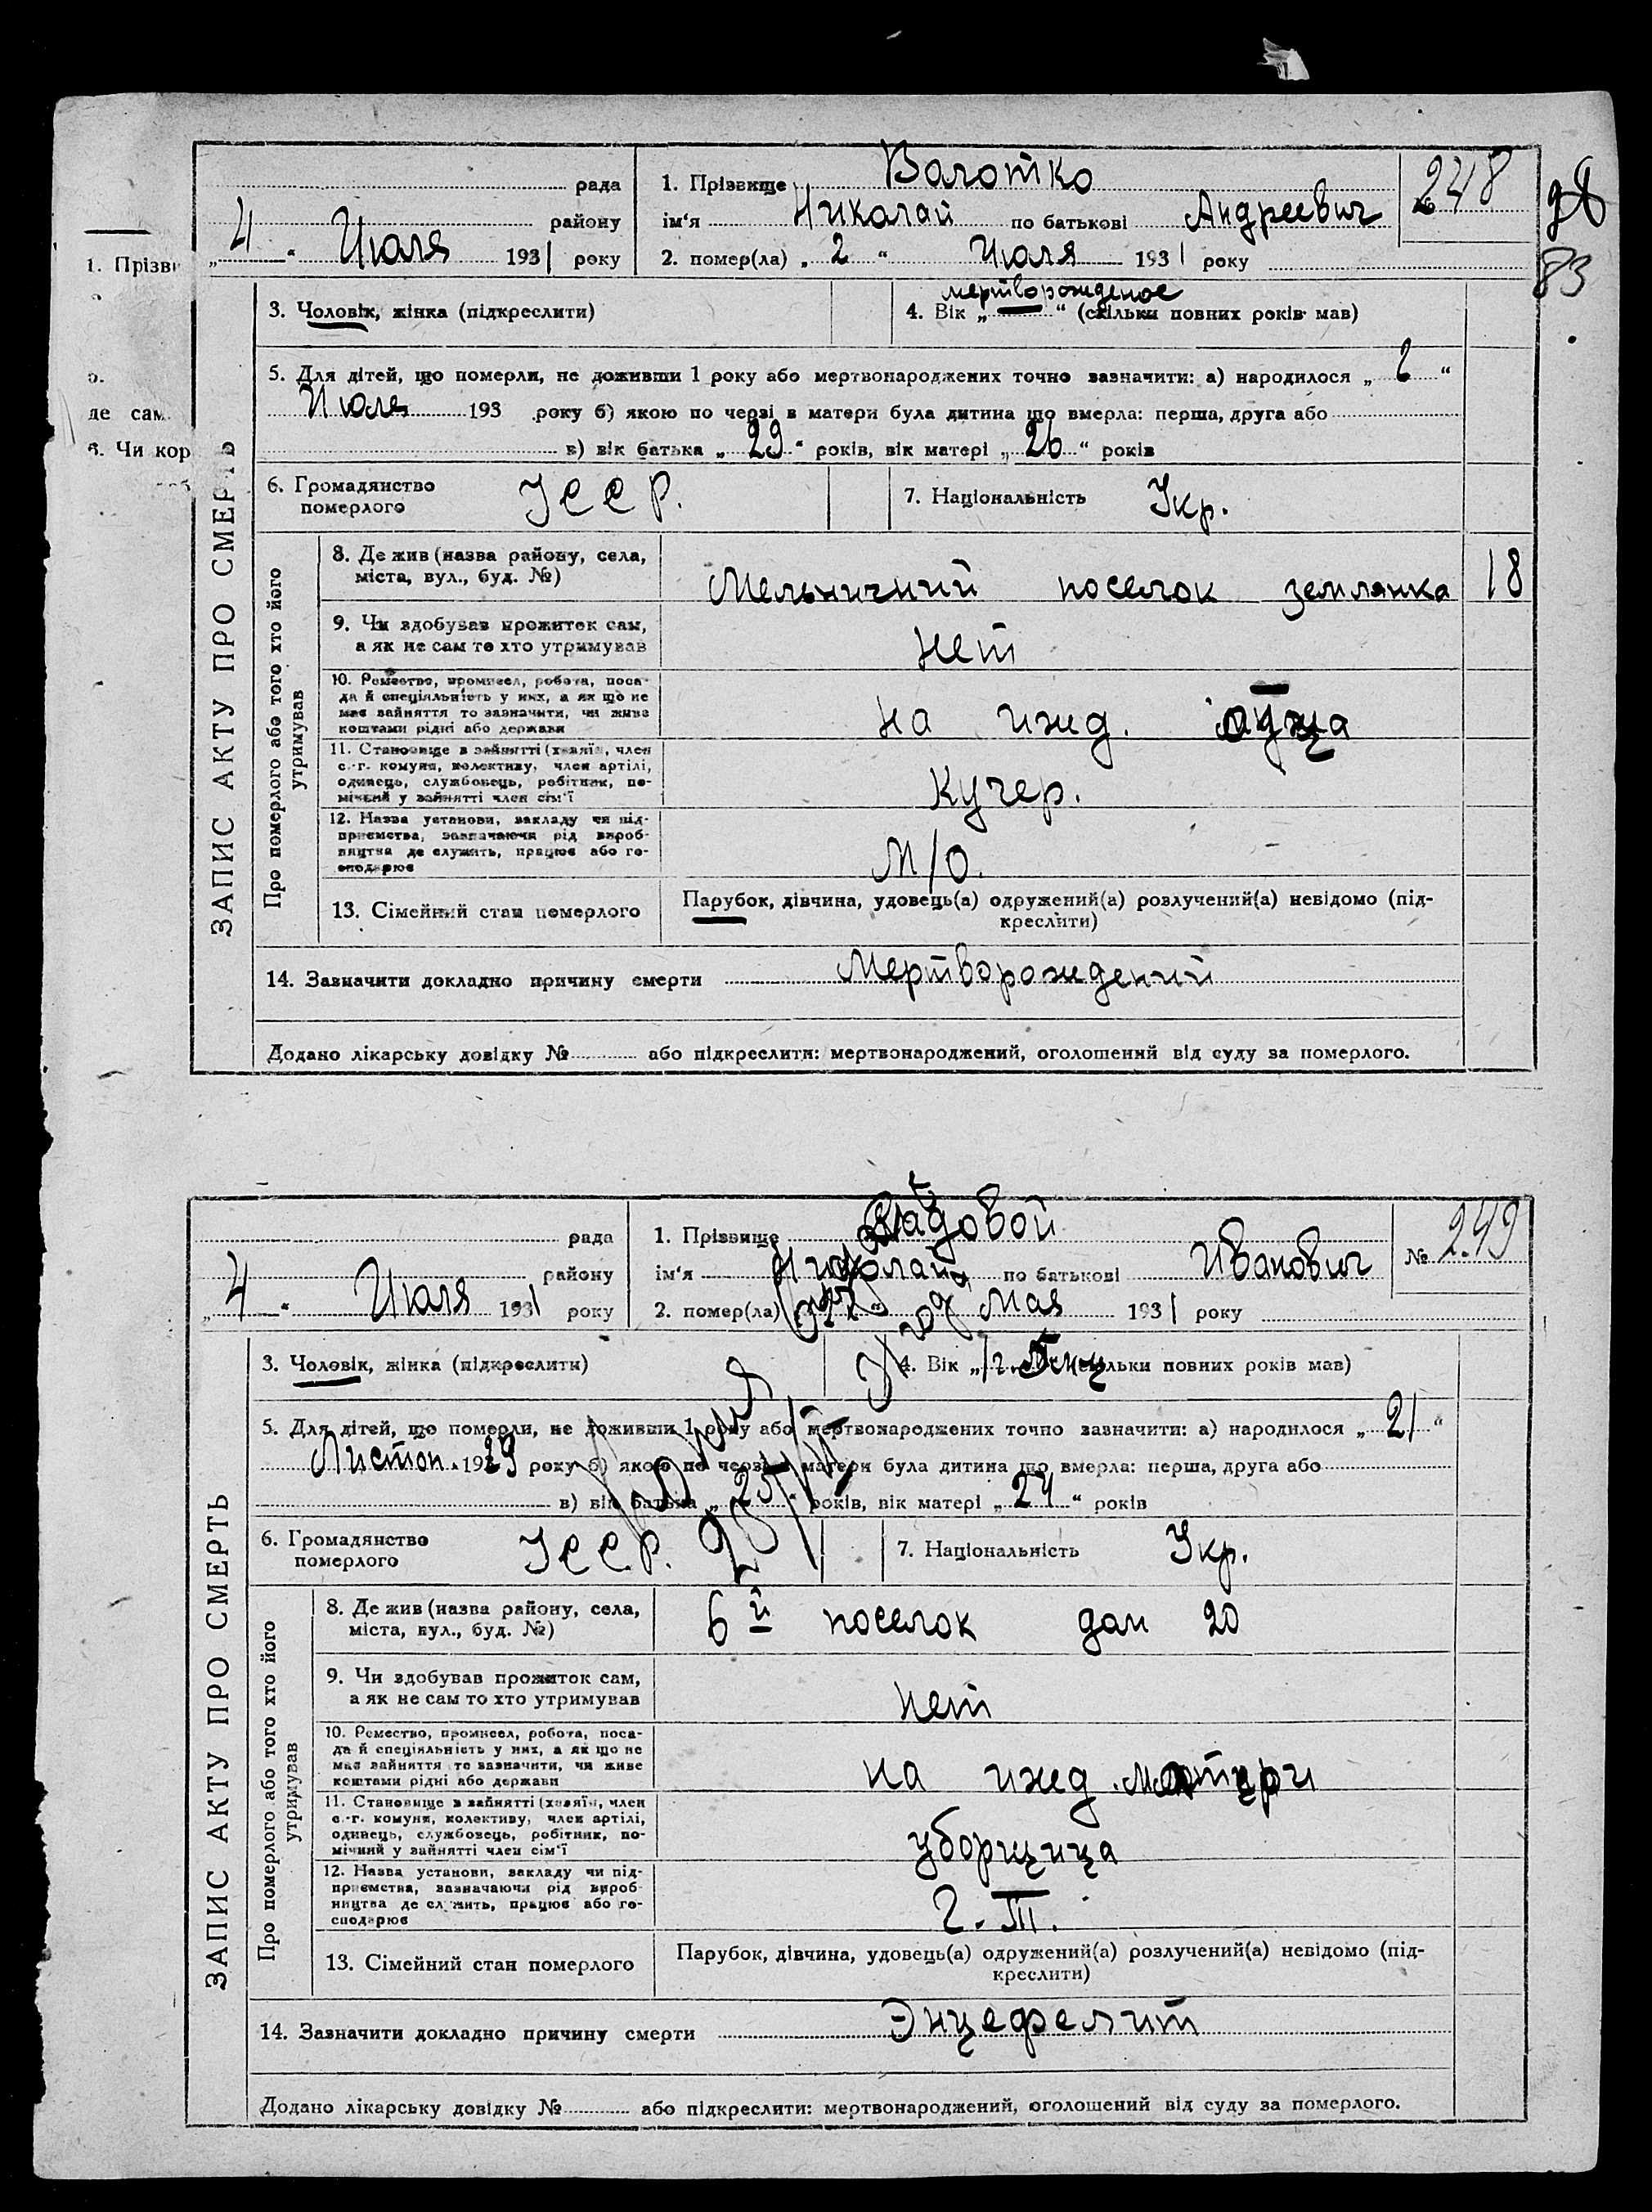 1. Прізви
де сам
6. Чи кор
ЗАПИС АКТУ ПРО СМЕРТЬ
рада
району
„4“ Июля 1931 року
1. Прізвище Валотко
ім'я Николай по батькові Андреевич
2. помер(ла) „2“ Июля 1931 року
№ 248
83
3. Чоловік, жінка (підкреслити)
мертворожденое
4. Вік „—“ (скільки повних років мав)
5. Для дітей, що померли, не доживши 1 року або мертвонароджених точно зазначити: а) народилося „2“
Июля 193 року б) якою по черзі в матери була дитина що вмерла: перша, друга або
в) вік батька „29“ років, вік матері „26“ років
6. Громадянство померлого УССР.
7. Національність Укр.
Про померлого або того хто його утримував
8. Де жив (назва району, села, міста, вул., буд. №)
Мельничний поселок землянка 18
9. Чи здобував прожиток сам, а як не сам то хто утримував
нет
10. Ремество, промисел, робота, посада й спеціяльність у них, а як що не має зайняття то зазначити, чи живе коштами рідні або держави
на ижд. отца
11. Становище в зайнятті (хазяїн, член с.-г. комуни, колективу, член артілі, одинець, службовець, робітник, помічний у зайнятті член сім'ї
Кучер.
12. Назва установи, закладу чи підприємства, зазначаючи рід виробництва де служить, працює або господарює
М/О.
13. Сімейний стан померлого
Парубок, дівчина, удовець(а) одружений(а) розлучений(а) невідомо (підкреслити)
14. Зазначити докладно причину смерти Мертворождений
Додано лікарську довідку № або підкреслити: мертвонароджений, оголошений від суду за померлого.
ЗАПИС АКТУ ПРО СМЕРТЬ
рада
району
„4“ Июля 1931 року
1. Прізвище
ім'я Николай по батькові Иванович
2. помер(ла) Мая 1931 року
№ 249
3. Чоловік, жінка (підкреслити)
4. Вік „1 г. (скільки повних років мав)
5. Для дітей, що померли, не доживши 1 року або мертвонароджених точно зазначити: а) народилося „21“
Листоп. 1929 року б) якою по черзі в матери була дитина що вмерла: перша, друга або
в) вік батька „25“ років, вік матері „24“ років
6. Громадянство померлого УССР.
7. Національність Укр.
Про померлого або того хто його утримував
8. Де жив (назва району, села, міста, вул., буд. №)
6й поселок дом 20
9. Чи здобував прожиток сам, а як не сам то хто утримував
нет
10. Ремество, промисел, робота, посада й спеціяльність у них, а як що не має зайняття то зазначити, чи живе коштами рідні або держави
на ижд. матери
11. Становище в зайнятті (хазяїн, член с.-г. комуни, колективу, член артілі, одинець, службовець, робітник, помічний у зайнятті член сім'ї
уборщица
12. Назва установи, закладу чи підприємства, зазначаючи рід виробництва де служить, працює або господарює
Г. Т.
13. Сімейний стан померлого
Парубок, дівчина, удовець(а) одружений(а) розлучений(а) невідомо (підкреслити)
14. Зазначити докладно причину смерти Энцефелит
Додано лікарську довідку № або підкреслити: мертвонароджений, оголошений від суду за померлого.